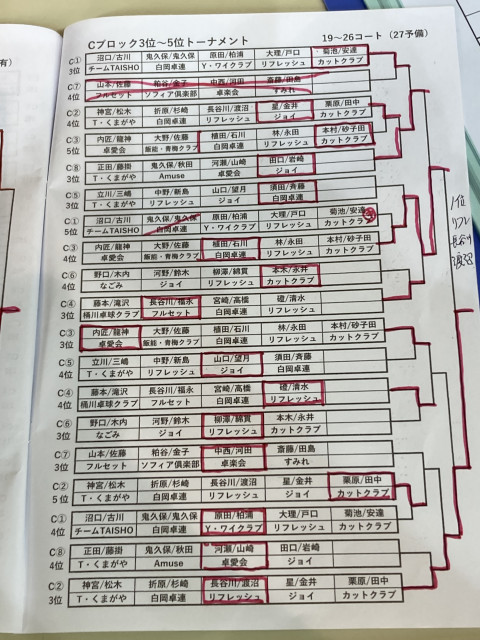 有)
Cブロック3位～5位トーナメント 19～26コート (27予備)
C① 沼口/古川 鬼久保/鬼久保 原田/柏浦 大理/戸口 菊池/安達
3位 チームTAISHO 白岡卓連 Y・ワイクラブ リフレッシュ カットクラブ
C⑦ 山本/佐藤 粕谷/金子 中西/河田 斎藤/田島
4位 フルセット ソフィア俱楽部 卓楽会 すみれ
C② 神宮/松木 折原/杉崎 長谷川/渡沼 星/金井 栗原/田中
4位 T・くまがや 白岡卓連 リフレッシュ ジョイ カットクラブ
C③ 内匠/龍神 大野/佐藤 植田/石川 林/永田 本村/砂子田
5位 卓愛会 飯能・青梅クラブ 白岡卓連 リフレッシュ カットクラブ
C⑧ 正田/藤掛 鬼久保/秋田 河瀬/山崎 田口/岩崎
3位 T・くまがや Amuse 卓愛会 ジョイ
C⑤ 立川/三嶋 中野/新島 山口/望月 須田/斉藤
3位 T・くまがや リフレッシュ ジョイ 白岡卓連
C① 沼口/古川 鬼久保/鬼久保 原田/柏浦 大理/戸口 菊池/安達
5位 チームTAISHO 白岡卓連 Y・ワイクラブ リフレッシュ カットクラブ
C③ 内匠/龍神 大野/佐藤 植田/石川 林/永田 本村/砂子田
4位 卓愛会 飯能・青梅クラブ 白岡卓連 リフレッシュ カットクラブ
C⑥ 野口/木内 河野/鈴木 柳澤/綿貫 本木/永井
4位 なごみ ジョイ リフレッシュ カットクラブ
C④ 藤本/滝沢 長谷川/福永 宮崎/高橋 磴/清水
3位 桶川卓球クラブ フルセット 白岡卓連 リフレッシュ
C③ 内匠/龍神 大野/佐藤 植田/石川 林/永田 本村/砂子田
3位 卓愛会 飯能・青梅クラブ 白岡卓連 リフレッシュ カットクラブ
C⑤ 立川/三嶋 中野/新島 山口/望月 須田/斉藤
4位 T・くまがや リフレッシュ ジョイ 白岡卓連
C④ 藤本/滝沢 長谷川/福永 宮崎/高橋 磴/清水
4位 桶川卓球クラブ フルセット 白岡卓連 リフレッシュ
C⑥ 野口/木内 河野/鈴木 柳澤/綿貫 本木/永井
3位 なごみ ジョイ リフレッシュ カットクラブ
C⑦ 山本/佐藤 粕谷/金子 中西/河田 斎藤/田島
3位 フルセット ソフィア俱楽部 卓楽会 すみれ
C② 神宮/松木 折原/杉崎 長谷川/渡沼 星/金井 栗原/田中
5位 T・くまがや 白岡卓連 リフレッシュ ジョイ カットクラブ
C① 沼口/古川 鬼久保/鬼久保 原田/柏浦 大理/戸口 菊池/安達
4位 チームTAISHO 白岡卓連 Y・ワイクラブ リフレッシュ カットクラブ
C⑧ 正田/藤掛 鬼久保/秋田 河瀬/山崎 田口/岩崎
4位 T・くまがや Amuse 卓愛会 ジョイ
C② 神宮/松木 折原/杉崎 長谷川/渡沼 星/金井 栗原/田中
3位 T・くまがや 白岡卓連 リフレッシュ ジョイ カットクラブ
1位
リフレ
長谷川
渡沼